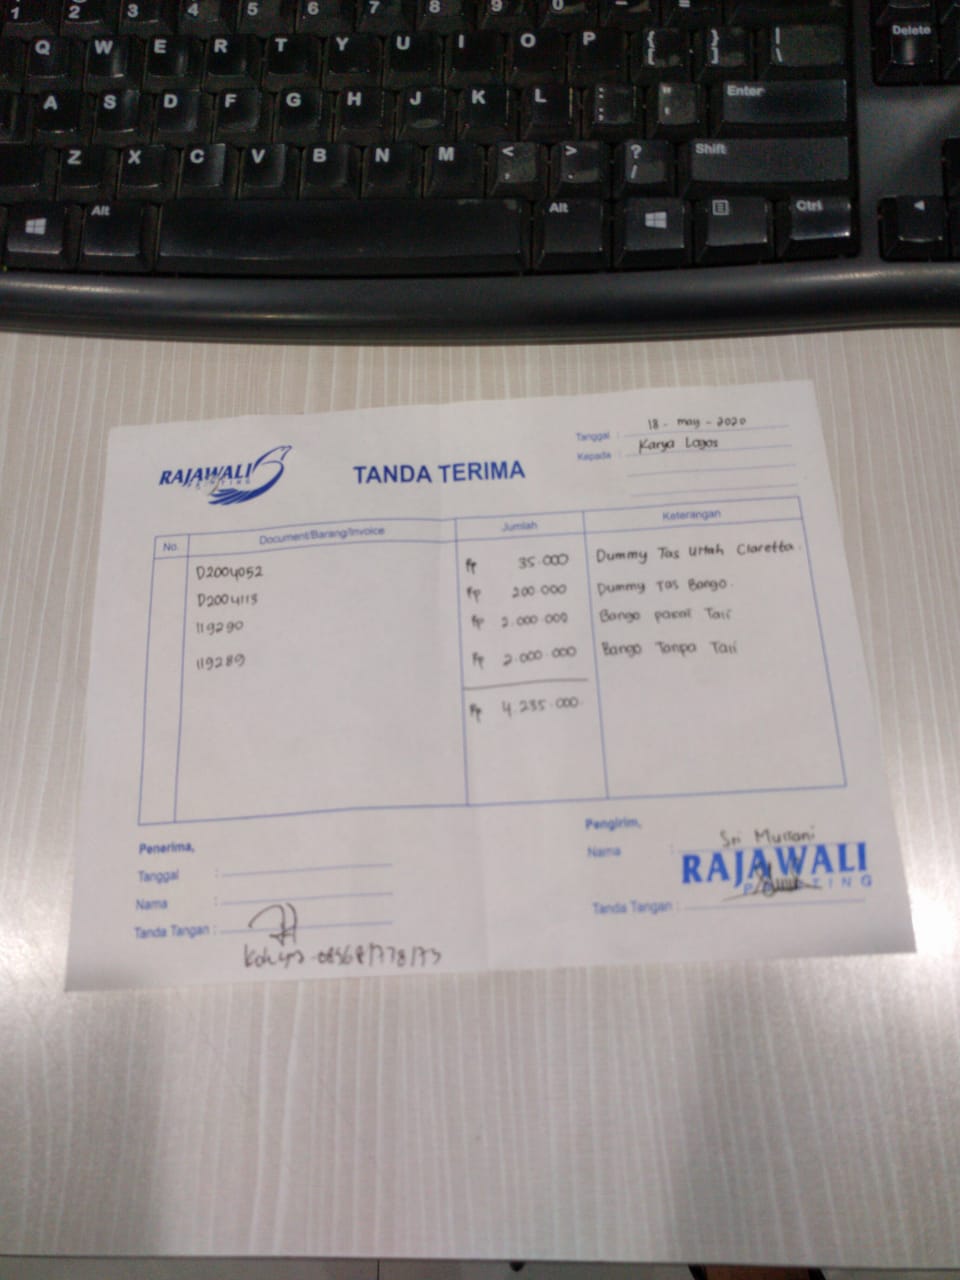 1 2 3 4 5 6 7 8 9 0 - =
Q W E R T Y U I O P { [ } ] | \ Delete
A S D F G H J K L : ; " ' Enter
Z X C V B N M < , > . ? / Shift
Alt Alt Ctrl
RAJAWALI
PRINTING
TANDA TERIMA
Tanggal : 18 - may - 2020
Kepada : Karya Lagos
No. Document/Barang/Invoice Jumlah Keterangan
D2004052 Rp 35.000 Dummy Tas Claretta.
D2004113 Rp 200.000 Dummy Tas Bango.
119290 Rp 2.000.000 Bango Tali
119289 Rp 2.000.000 Bango Tanpa Tali
Rp 4.235.000
Penerima,
Tanggal :
Nama :
Tanda Tangan :
Pengirim,
Nama : Sri
RAJAWALI
PRINTING
Tanda Tangan :